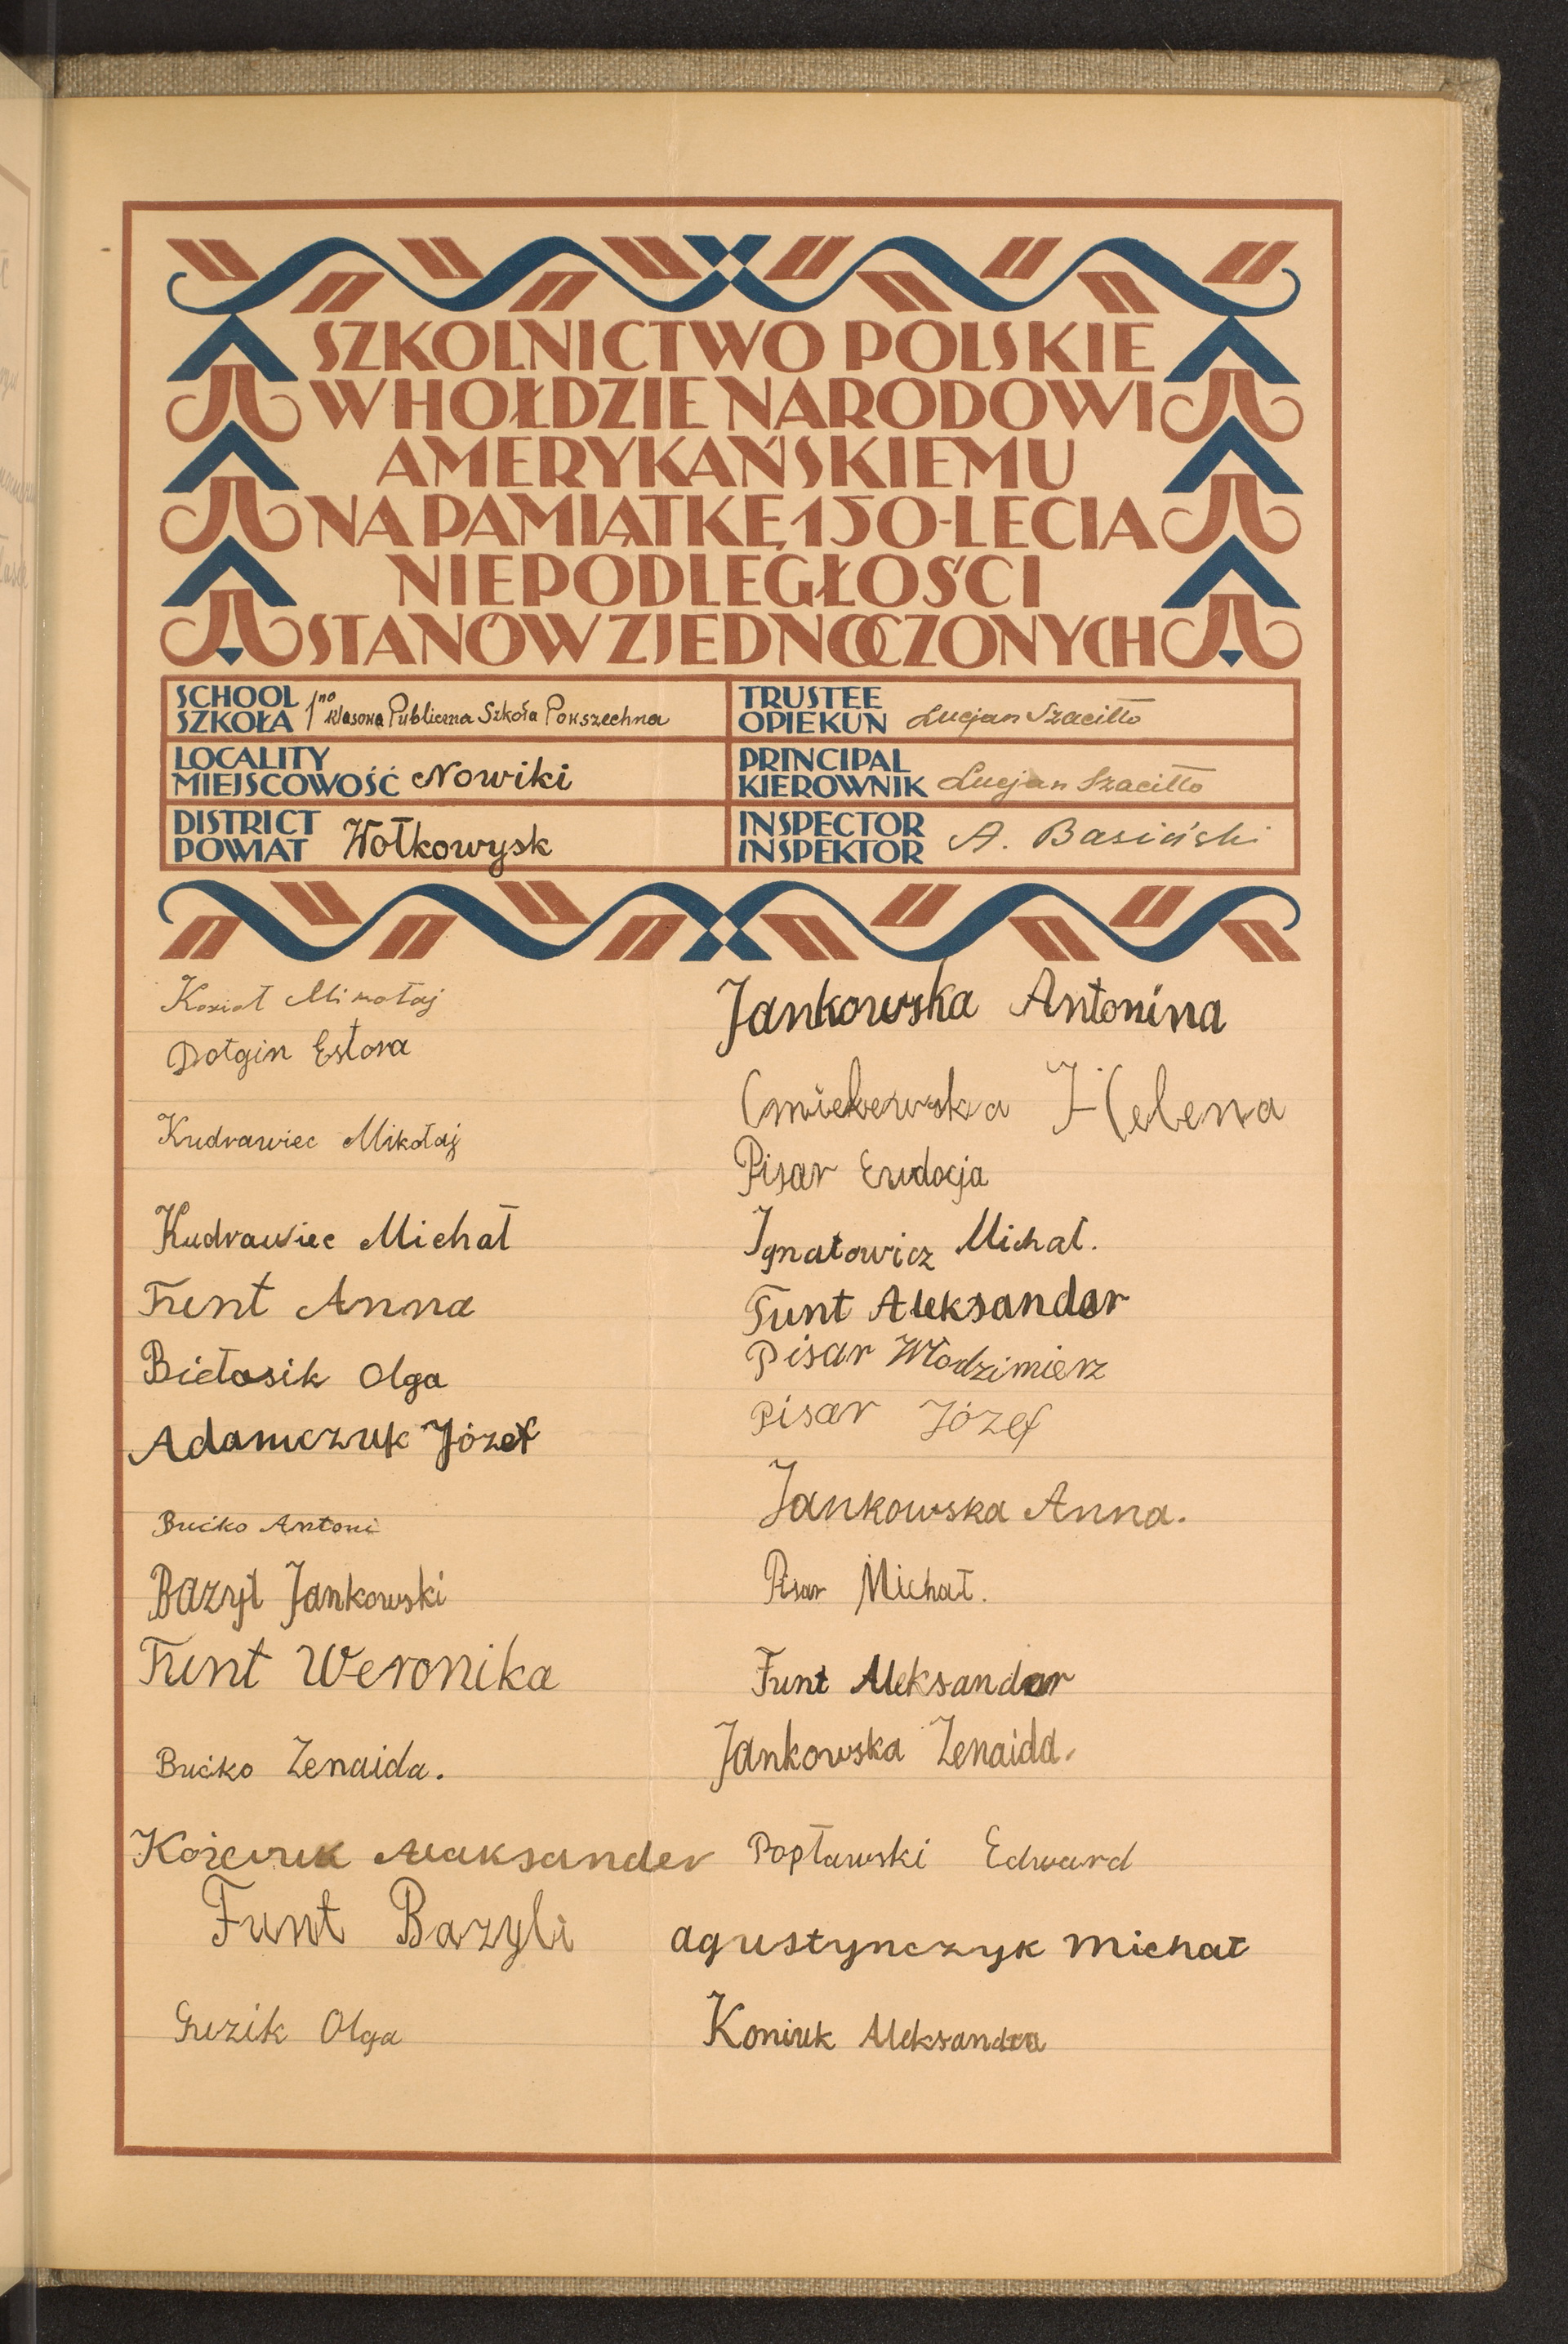 SZKOLNICTWO POLSKIE
W HOŁDZIE NARODOWI
AMERYKAŃSKIEMU
NA PAMIĄTKĘ 150-LECIA
NIEPODLEGŁOŚCI
STANÓW ZJEDNOCZONYCH
SCHOOL
SZKOŁA 1no klasowa Publiczna Szkoła Powszechna
TRUSTEE
OPIEKUN Lucjan Szaciłło
LOCALITY
MIEJSCOWOŚĆ Nowiki
PRINCIPAL
KIEROWNIK Lucjan Szaciłło
DISTRICT
POWIAT Wołkowysk
INSPECTOR
INSPEKTOR A. Basiński
Kozioł Mikołaj
Dołgin Estera
Kudrawiec Mikołaj
Kudrawiec Michał
Funt Anna
Biełasik Olga
Adamczuk Józef
Bućko Antoni
Bazyl Jankowski
Funt Weronika
Bućko Zenaida.
Aleksander
Funt Bazyli
Guzik Olga
Jankowska Antonina
Helena
Pisar Ewdocja
Ignatowicz Michał.
Funt Aleksander
Pisar Włodzimierz
Pisar Józef
Jankowska Anna.
Pisar Michał.
Funt Aleksander
Jankowska Zenaida.
Popławski Edward
agustynczyk Michał
Koniuk Aleksandra